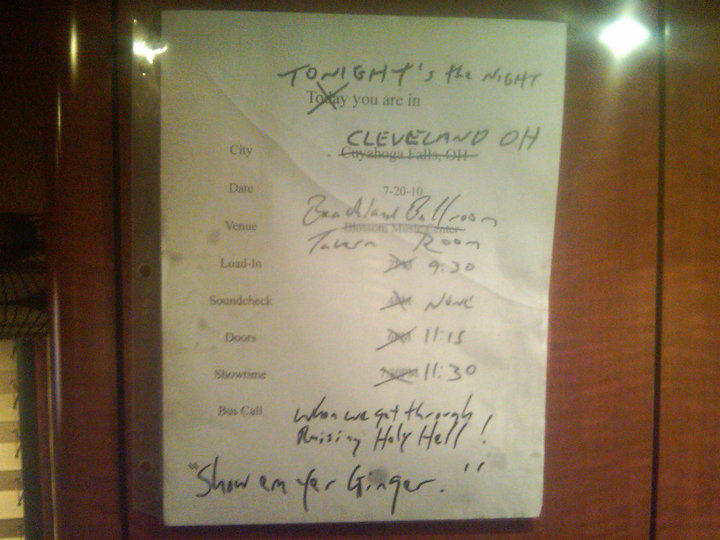 TONIGHT's the NIGHT
Today you are in
CLEVELAND OH
City Cuyahoga Falls, OH
Date 7-20-10
Beachland Ballroom
Venue Blossom Music Center
Tavern Room
Load-In 9:30
Soundcheck 4PM NONE
Doors 11:15
Showtime 7:30PM 11:30
Bus Call When we get through
Raising Holy Hell!
"Show em yer Ginger."